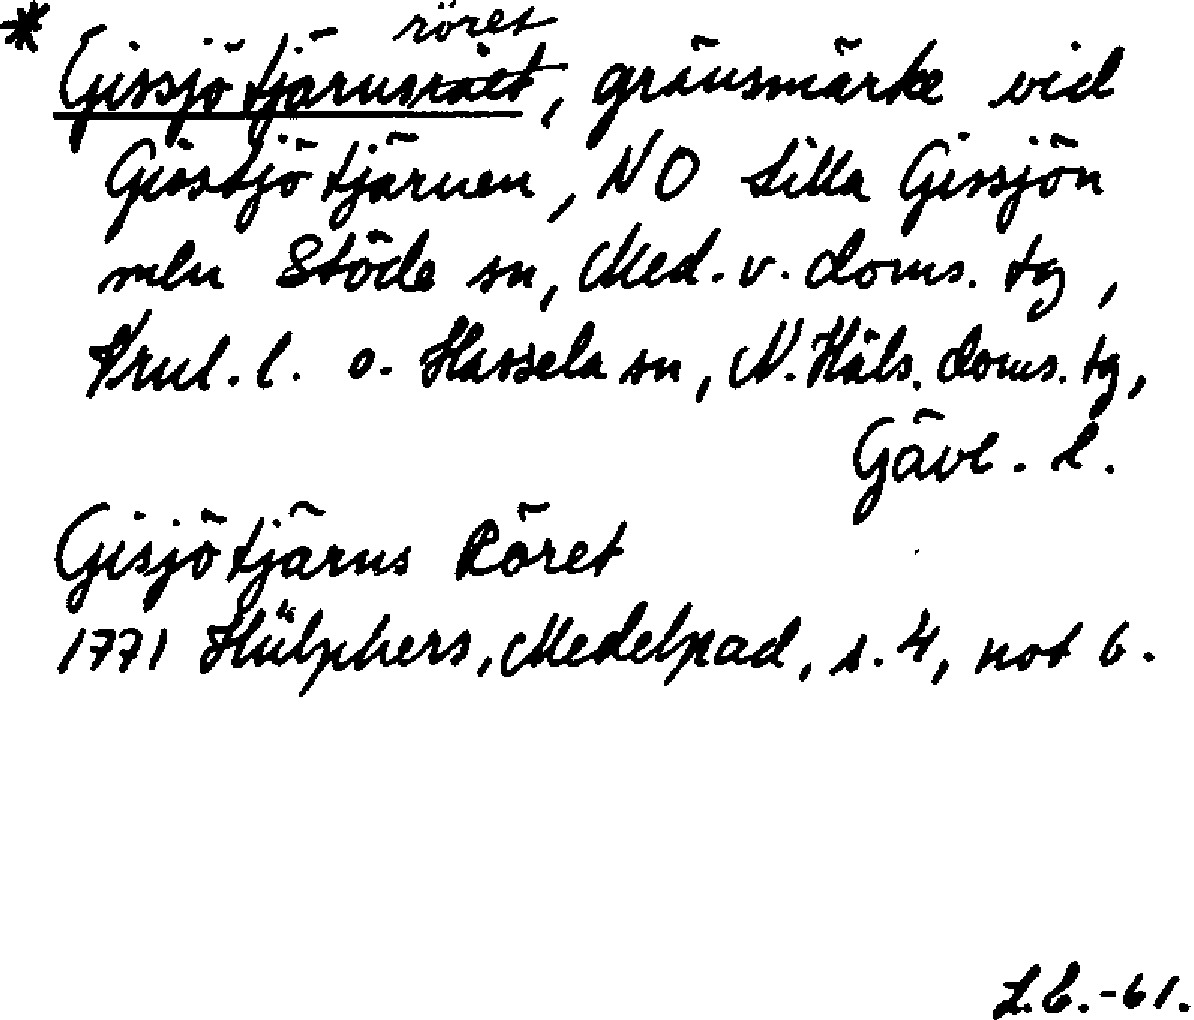 * röret
Gissjötjärnsrået, gränsmärke vid
Gissjötjärnen, NO Lilla Gissjön
mln Stöde sn, Med. v. doms. tg,
Vnl. l. o. Hassela sn, N. Häls. doms. tg,
Gävl. l.
Gisjötjärns Röret
1771 Hülphers, Medelpad, s. 4, not 6.
-61.